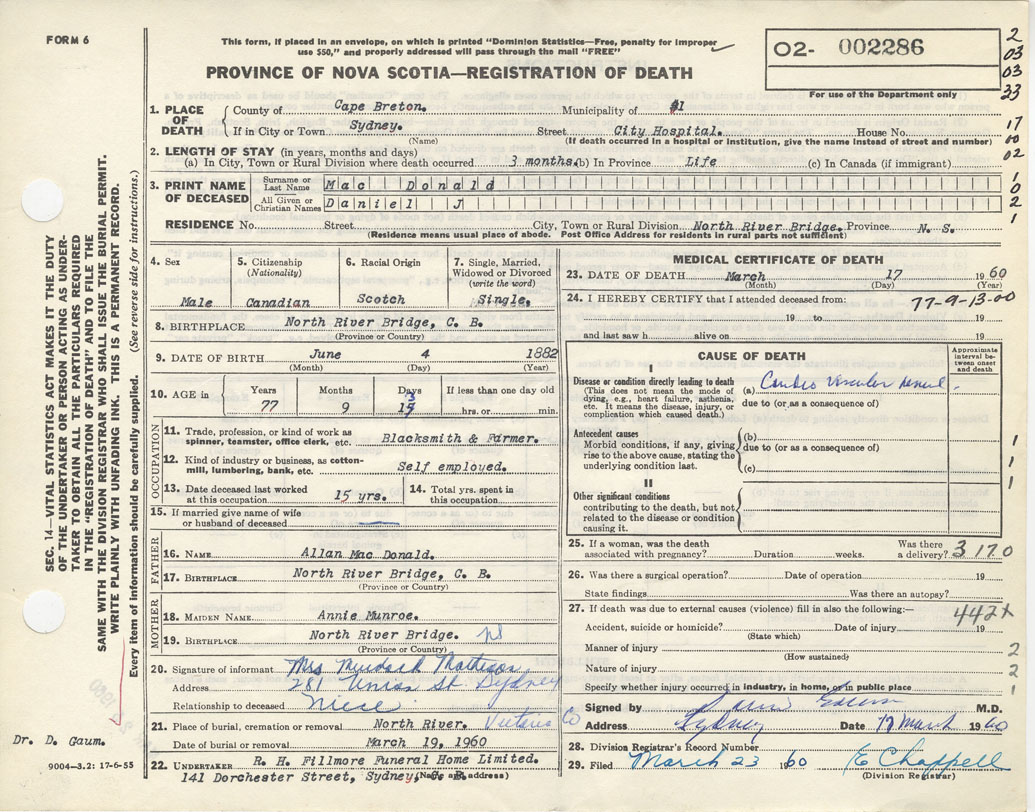 FORM 6
This form, if placed in an envelope, on which is printed "Dominion Statistics—Free, penalty for improper
use $50," and properly addressed will pass through the mail "FREE"
PROVINCE OF NOVA SCOTIA—REGISTRATION OF DEATH
02- 002286
For use of the Department only
2
03
03
33
17
00
02
1
0
2
1
1. PLACE OF DEATH
County of Cape Breton. Municipality of #1
If in City or Town Sydney. Street City Hospital. House No.
(Name) (If death occurred in a hospital or institution, give the name instead of street and number)
2. LENGTH OF STAY (in years, months and days)
(a) In City, Town or Rural Division where death occurred 3 months. (b) In Province Life (c) In Canada (if immigrant)
3. PRINT NAME OF DECEASED
Surname or Last Name Mac Donald
All Given or Christian Names Daniel J
RESIDENCE No. Street City, Town or Rural Division North River Bridge. Province N. S.
(Residence means usual place of abode. Post Office Address for residents in rural parts not sufficient)
4. Sex Male
5. Citizenship (Nationality) Canadian
6. Racial Origin Scotch
7. Single, Married, Widowed or Divorced (write the word) Single.
8. BIRTHPLACE North River Bridge, C. B.
(Province or Country)
9. DATE OF BIRTH June 4 1882
(Month) (Day) (Year)
10. AGE in Years Months Days If less than one day old
77 9 13 hrs. or min.
OCCUPATION
11. Trade, profession, or kind of work as spinner, teamster, office clerk, etc. Blacksmith & Farmer.
12. Kind of industry or business, as cotton-mill, lumbering, bank, etc. Self employed.
13. Date deceased last worked at this occupation 15 yrs.
14. Total yrs. spent in this occupation
15. If married give name of wife or husband of deceased —
FATHER
16. NAME Allan Mac Donald.
17. BIRTHPLACE North River Bridge, C. B.
(Province or Country)
MOTHER
18. MAIDEN NAME Annie Munroe.
19. BIRTHPLACE North River Bridge. NS
(Province or Country)
20. Signature of informant Mrs Murdock Matheson
Address 281 Union St Sydney
Relationship to deceased Niece
21. Place of burial, cremation or removal North River. Victoria Co
Date of burial or removal March 19, 1960
22. UNDERTAKER R. H. Fillmore Funeral Home Limited.
141 Dorchester Street, Sydney, N. S.
(Name and address)
MEDICAL CERTIFICATE OF DEATH
23. DATE OF DEATH March 17 1960
(Month) (Day) (Year)
24. I HEREBY CERTIFY that I attended deceased from: 77-9-13-00
19 to 19
and last saw h alive on 19
CAUSE OF DEATH
Approximate interval between onset and death
I
Disease or condition directly leading to death
(This does not mean the mode of dying, e.g., heart failure, asthenia, etc. It means the disease, injury, or complication which caused death.)
(a) Cardio Vascular
due to (or as a consequence of)
Antecedent causes
Morbid conditions, if any, giving rise to the above cause, stating the underlying condition last.
(b)
due to (or as a consequence of)
(c)
1
1
1
II
Other significant conditions contributing to the death, but not related to the disease or condition causing it.
25. If a woman, was the death associated with pregnancy? Duration weeks. Was there a delivery? 3170
26. Was there a surgical operation? Date of operation 19
State findings Was there an autopsy?
27. If death was due to external causes (violence) fill in also the following:— 442X
Accident, suicide or homicide? Date of injury 19
(State which)
Manner of injury 2
(How sustained)
Nature of injury 2
Specify whether injury occurred in industry, in home, or in public place 1
Signed by M.D.
Address Sydney Date 17 March 1960
28. Division Registrar's Record Number
29. Filed March 23 1960 E Chappell
(Division Registrar)
SEC. 14—VITAL STATISTICS ACT MAKES IT THE DUTY
OF THE UNDERTAKER OR PERSON ACTING AS UNDER-
TAKER TO OBTAIN ALL THE PARTICULARS REQUIRED
IN THE "REGISTRATION OF DEATH" AND TO FILE THE
SAME WITH THE DIVISION REGISTRAR WHO SHALL ISSUE THE BURIAL PERMIT.
WRITE PLAINLY WITH UNFADING INK. THIS IS A PERMANENT RECORD.
Every item of information should be carefully supplied. (See reverse side for instructions.)
Dr. D. Gaum.
9004—3.2: 17-6-55